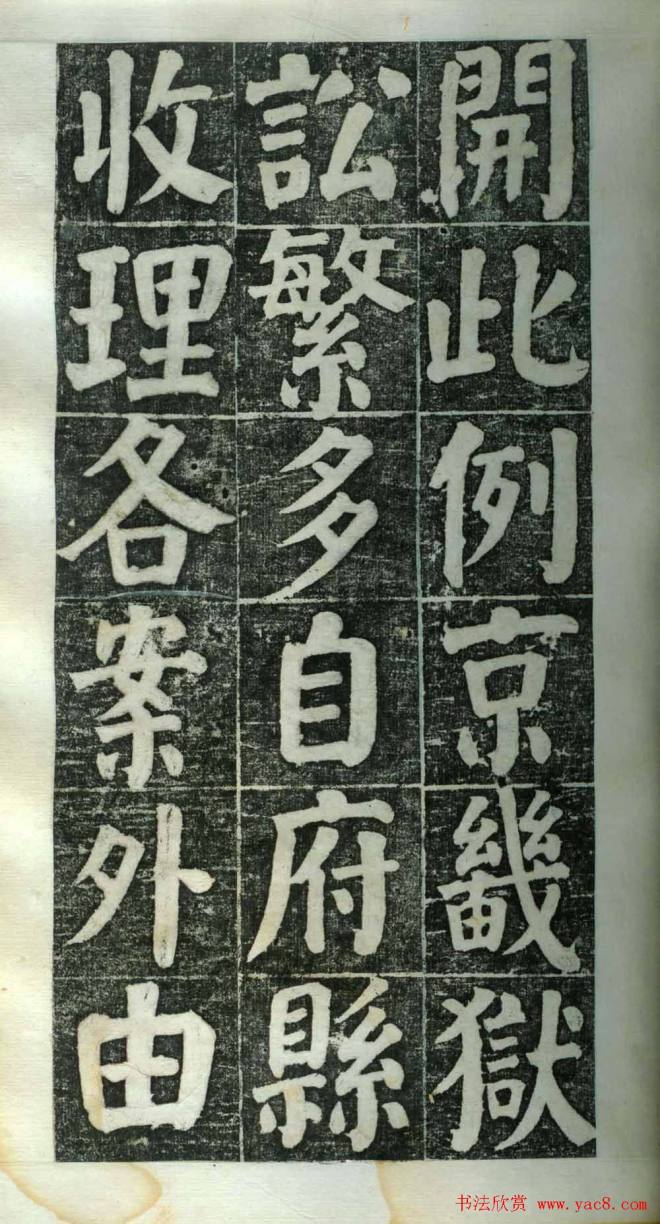 開此例京畿獄
訟繁多自府縣
收理各案外由
书法欣赏 www.yac8.com